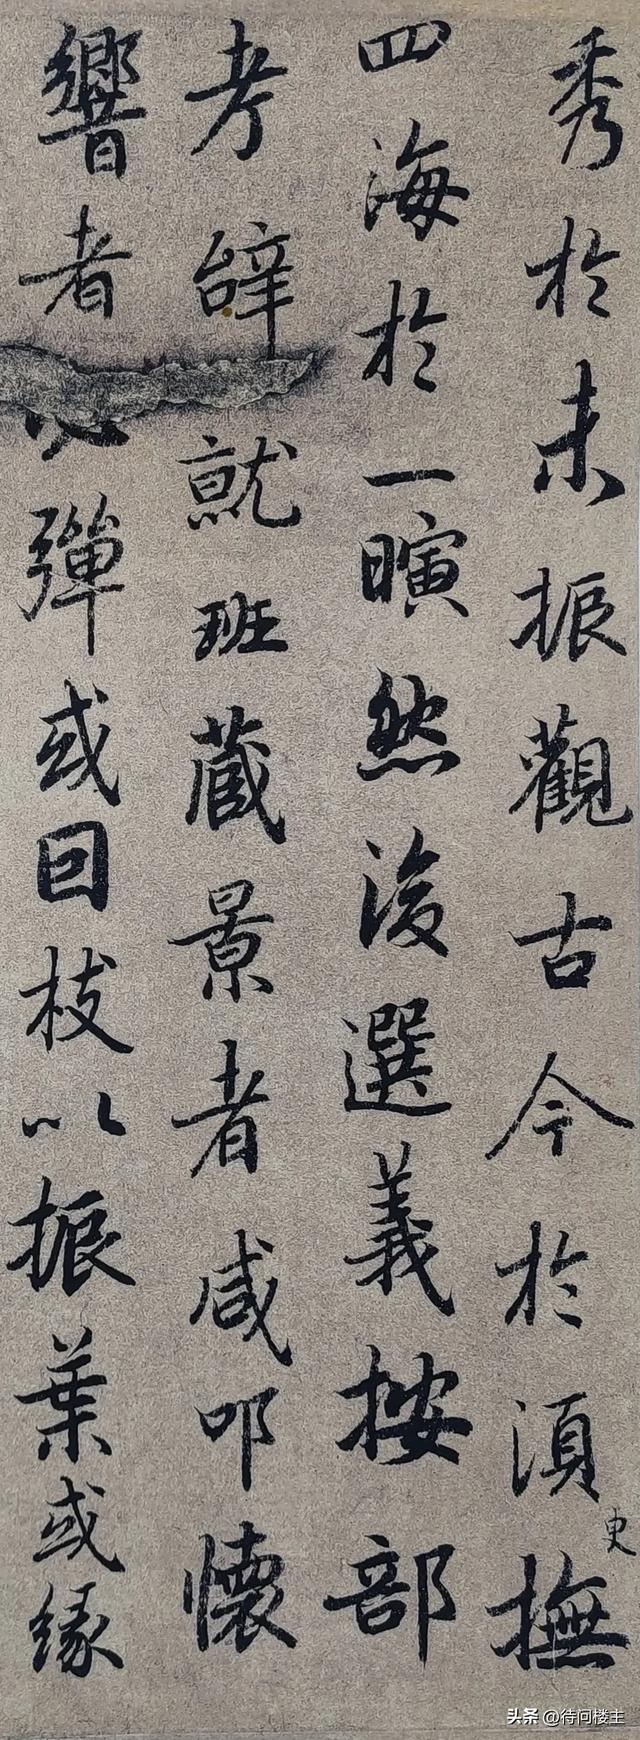 秀於未振觀古今於須臾撫
四海於一瞚然後選義按部
考辝就班蔵景者咸叩懷
響者彈或囙枝以振葉或緣
头条 @待问楼主